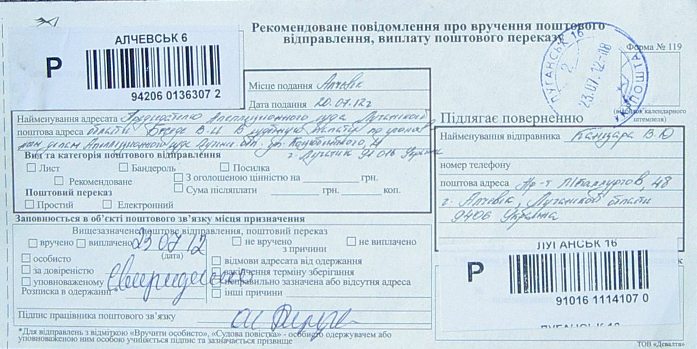 Рекомендоване повідомлення про вручення поштового
відправлення, виплату поштового переказу
Форма № 119
АЛЧЕВСЬК 6
P
94206 0136307 2
ЛУГАНСЬК 16
23.07.12-18
ПОШТА
(відбиток календарного
штемпеля)
Місце подання Алчевск
Дата подання 20.07.12г
Найменування адресата
поштова адреса
Вид та категорія поштового відправлення
Лист Бандероль Посилка
Рекомендоване З оголошеною цінністю на грн.
Поштовий переказ Сума післяплати грн. коп.
Простий Електронний
Підлягає поверненню
Найменування відправника Канцара В.Ю
номер телефону
поштова адреса пр-т Металлургов, 48
г. Алчевск, Луганской области
9406 Украина
Заповнюється в об'єкті поштового зв'язку місця призначення
Вищезазначене поштове відправлення, поштовий переказ
вручено виплачено 23 07 12 не вручено не виплачено
(дата) з причини
особисто відмови адресата від одержання
за довіреністю закінчення терміну зберігання
уповноваженому неправильно зазначена або відсутня адреса
Розписка в одержанні інші причини
Підпис працівника поштового зв'язку
*Для відправлень з відміткою «Вручити особисто», «Судова повістка» - особисто одержувачем або
уповноваженою ним особою учиняється підпис та зазначається прізвище
ЛУГАНСЬК 16
P
91016 1114107 0
ЛУГАНСЬК 16
ТОВ «Девалта»